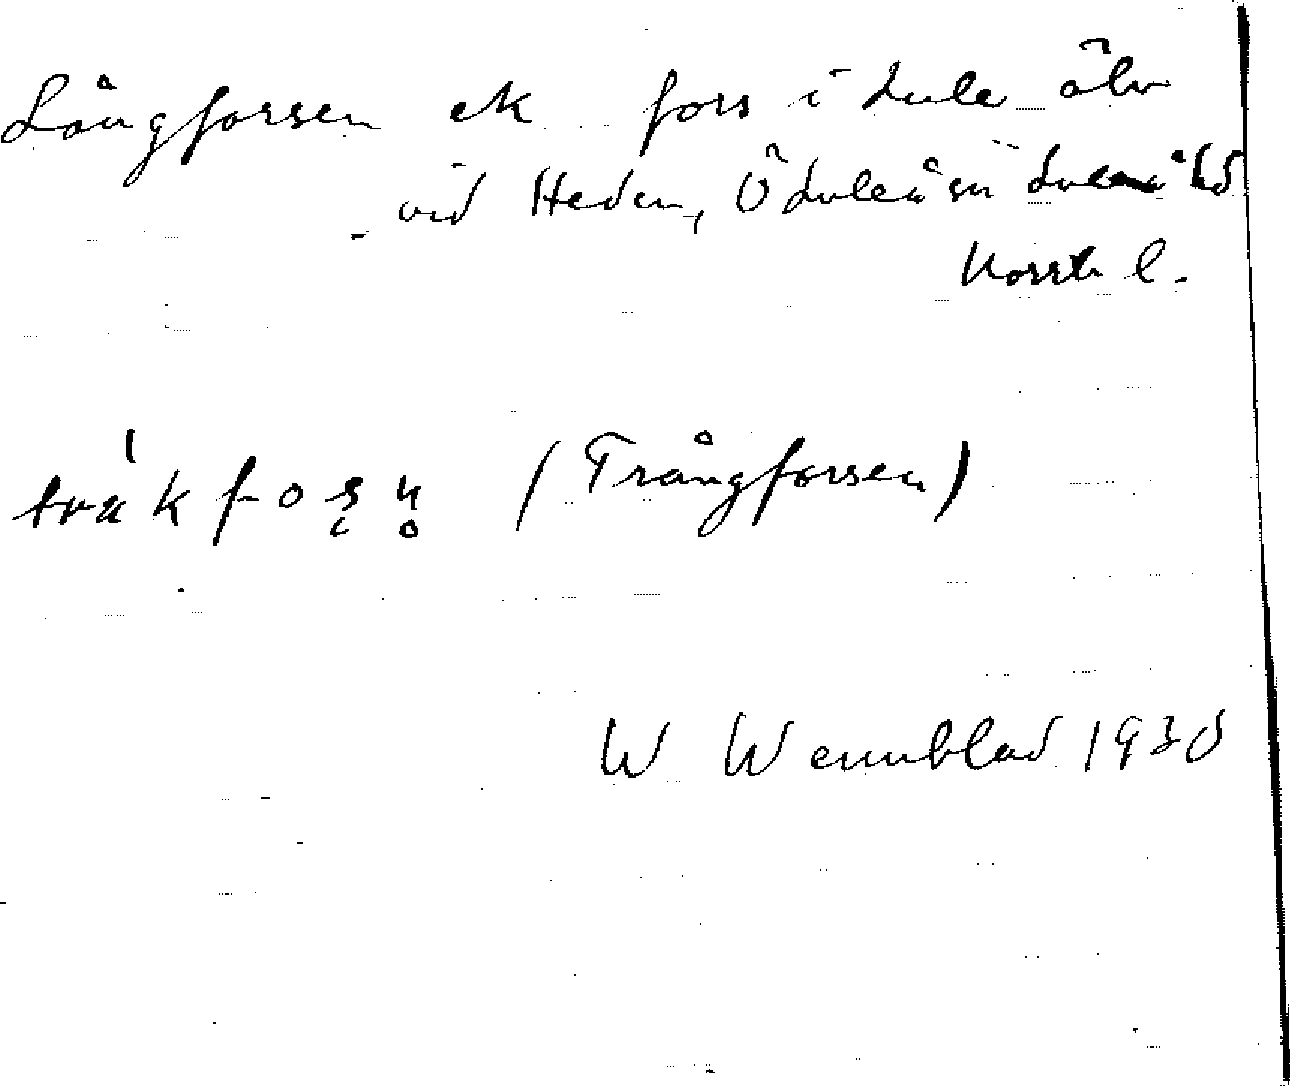 Långforsen ek fors i Lule älv
vid Heden, Ö Luleå sn Luleå hd
Norrb l.
(Trångforsen)
W Wennblad 1930